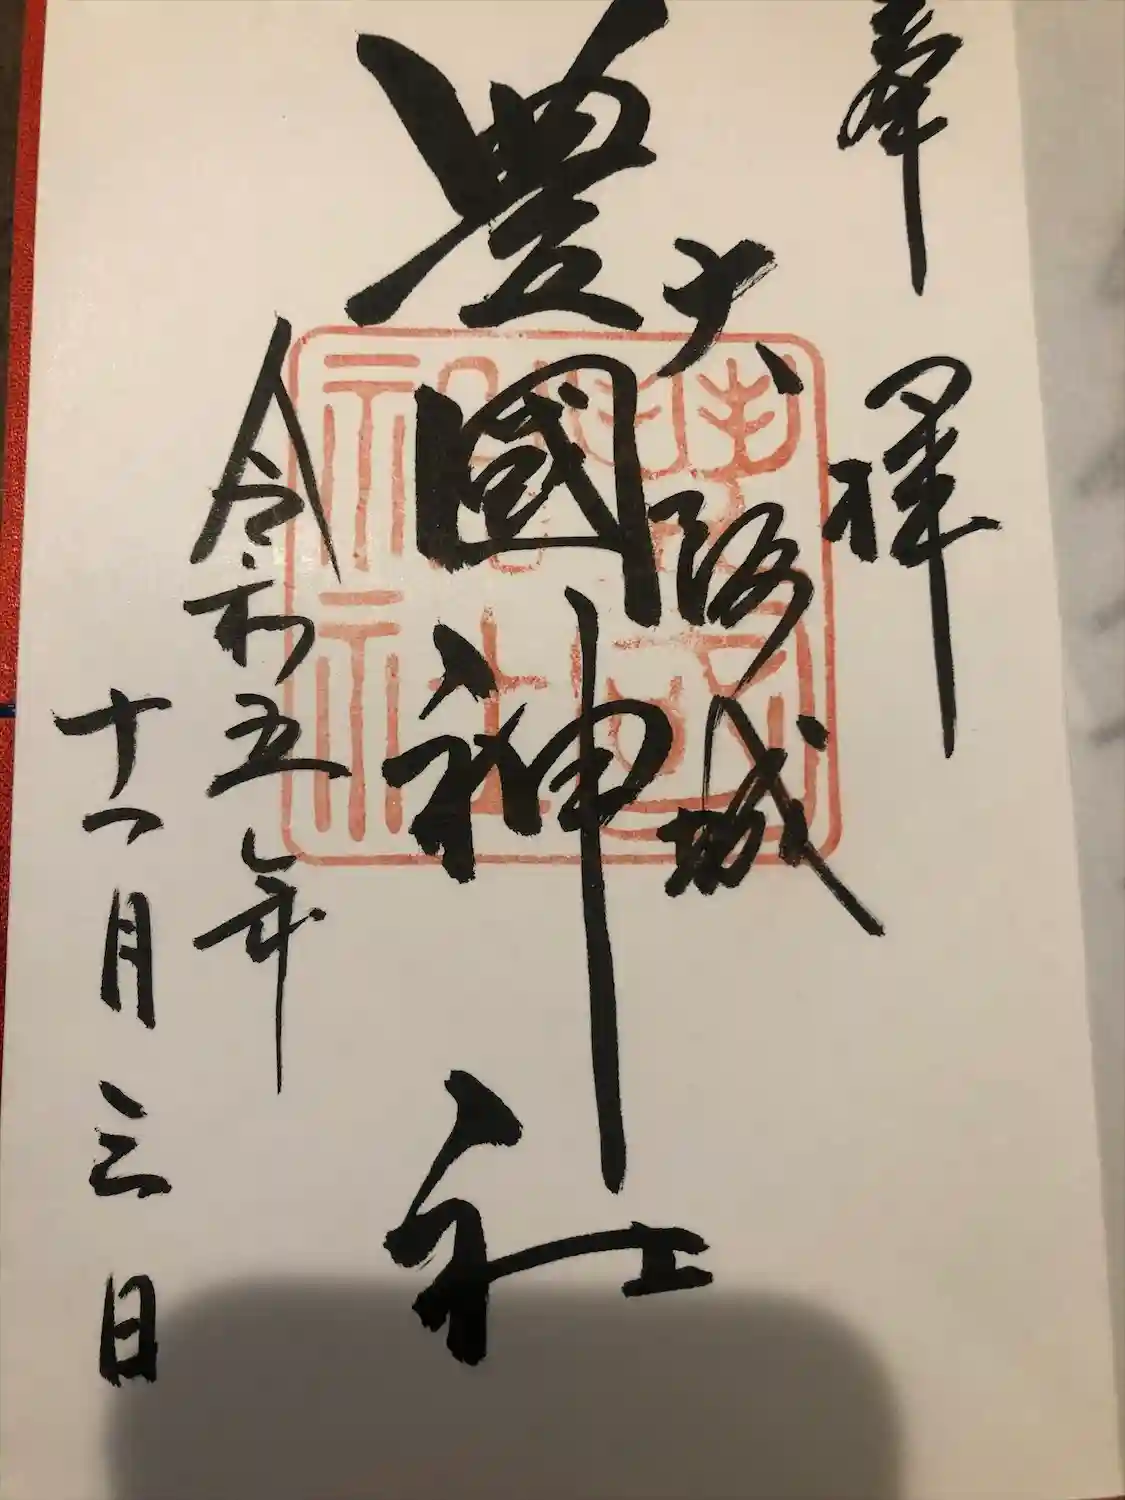 奉拝
大阪城
豊國神社
令和五年
十一月三日
豊国
神社